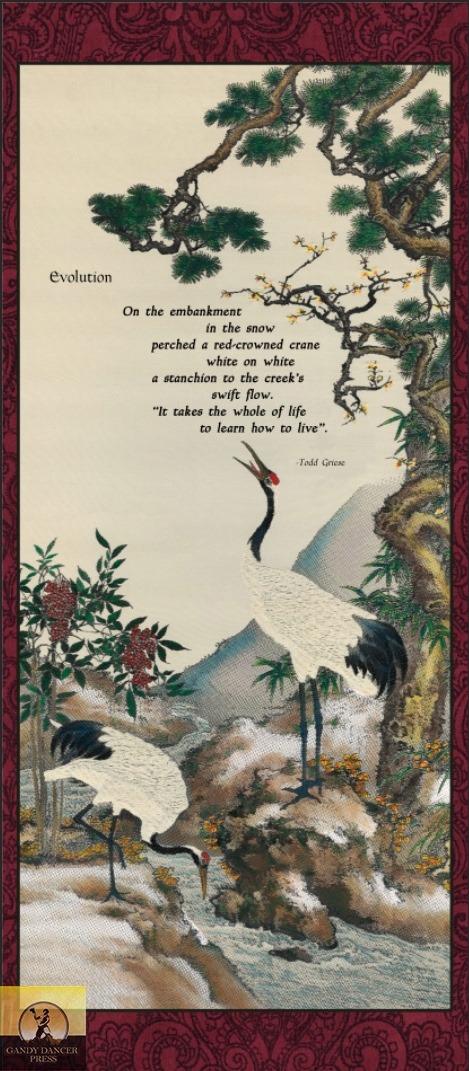 Evolution
On the embankment
in the snow
perched a red-crowned crane
white on white
a stanchion to the creek's
swift flow.
"It takes the whole of life
to learn how to live".
-Todd Griese
GANDY DANCER
PRESS